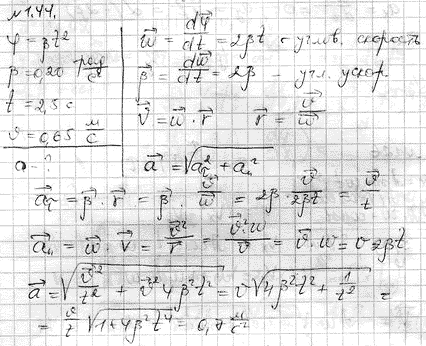 №1.44.
φ = βt²
β = 0,20 рад/с²
t = 2,5 с
v = 0,65 м/с
a - ?
w⃗ = dφ⃗/dt = 2βt - углов. скорость
β⃗ = dw⃗/dt = 2β - угл. ускор.
v⃗ = w⃗ · r⃗ r⃗ = v⃗/w⃗
a⃗ = √(a_τ² + a_n²)
a⃗_τ = β⃗ · r⃗ = β⃗ · v⃗/w⃗ = 2β · v⃗/2βt = v⃗/t
a⃗_n = w⃗ · v⃗ = v⃗²/r⃗ = v⃗²·w/v⃗ = v⃗ · w = v 2βt
a⃗ = √(v⃗²/t² + v⃗² 4β²t²) = v √(4β²t² + 1/t²) =
= v/t √(1 + 4β²t⁴) = 0,7 м/с²